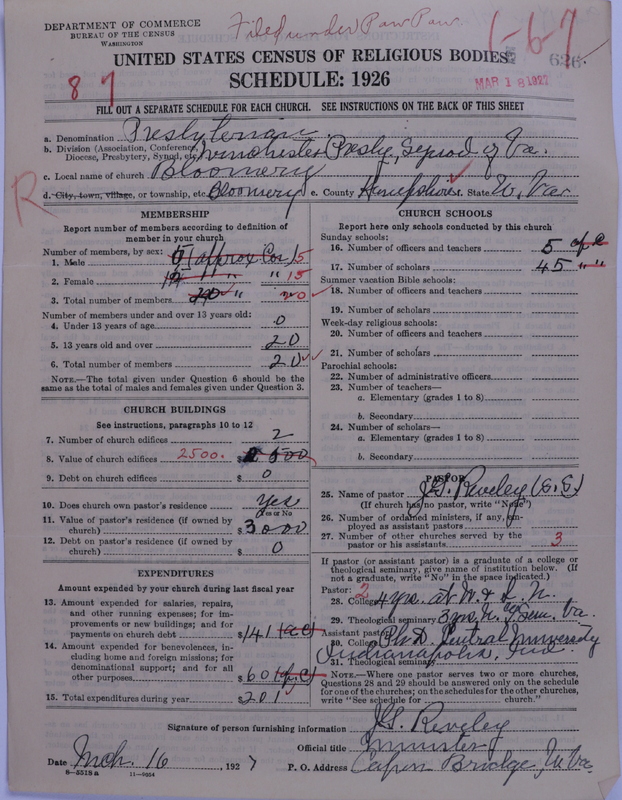 DEPARTMENT OF COMMERCE
BUREAU OF THE CENSUS
WASHINGTON
Filed under Paw Paw
1-6-7
626
MAR 18 1927
UNITED STATES CENSUS OF RELIGIOUS BODIES
SCHEDULE: 1926
87
FILL OUT A SEPARATE SCHEDULE FOR EACH CHURCH. SEE INSTRUCTIONS ON THE BACK OF THIS SHEET
a. Denomination Presbyterian
b. Division (Association, Conference, Diocese, Presbytery, Synod, etc. Winchester Presby, Synod of Va.
c. Local name of church Bloomery
R
d. City, town, village, or township, etc. Bloomery e. County Hampshire f. State W. Va.
MEMBERSHIP
Report number of members according to definition of
member in your church
Number of members, by sex:
1. Male 5 (approx Cor) 5
2. Female 15 " " 15
3. Total number of members 20 " 20
Number of members under and over 13 years old:
4. Under 13 years of age 0
5. 13 years old and over 20
6. Total number of members 20
NOTE.—The total given under Question 6 should be the
same as the total of males and females given under Question 3.
CHURCH BUILDINGS
See instructions, paragraphs 10 to 12
7. Number of church edifices 2
8. Value of church edifices 2500. $ 500
9. Debt on church edifices $ 0
10. Does church own pastor's residence Yes
(Yes or No
11. Value of pastor's residence (if owned by
church) $ 3000
12. Debt on pastor's residence (if owned by
church) $ 0
EXPENDITURES
Amount expended by your church during last fiscal year
13. Amount expended for salaries, repairs,
and other running expense; for im-
provements or new buildings; and for
payments on church debt $ 141 (ac)
14. Amount expended for benevolences, in-
cluding home and foreign missions; for
denominational support; and for all
other purposes $ 60 (p.c)
15. Total expenditures during year $ 201
CHURCH SCHOOLS
Report here only schools conducted by this church
Sunday schools:
16. Number of officers and teachers 5 ap c
17. Number of scholars 45 " "
Summer vacation Bible schools:
18. Number of officers and teachers
19. Number of scholars
Week-day religious schools:
20. Number of officers and teachers
21. Number of scholars
Parochial schools:
22. Number of administrative officers
23. Number of teachers—
a. Elementary (grades 1 to 8)
b. Secondary
24. Number of scholars—
a. Elementary (grades 1 to 8)
b. Secondary
PASTOR
25. Name of pastor J.G. Reveley (S.S)
(If church has no pastor, write "None")
26. Number of ordained ministers, if any, em-
ployed as assistant pastors
27. Number of other churches served by the
pastor or his assistants 3
If pastor (or assistant pastor) is a graduate of a college or
theological seminary, give name of institution below. (If
not a graduate, write "No" in the space indicated.)
Pastor: 2
28. College 4 yrs. at W. & L. U.
29. Theological seminary 3 yrs. Sem. Va.
Assistant pastor:
30. College Ph.D. Central University
Indianapolis, Ind.
31. Theological seminary
NOTE.—Where one pastor serves two or more churches,
Questions 28 and 29 should be answered only on the schedule
for one of the churches; on the schedules for the other churches,
write "See schedule for church."
Signature of person furnishing information J.G. Reveley
Official title Minister
Date Mch. 16, 1927 P. O. Address Capon Bridge, W. Va.
8—5518a 11—9654